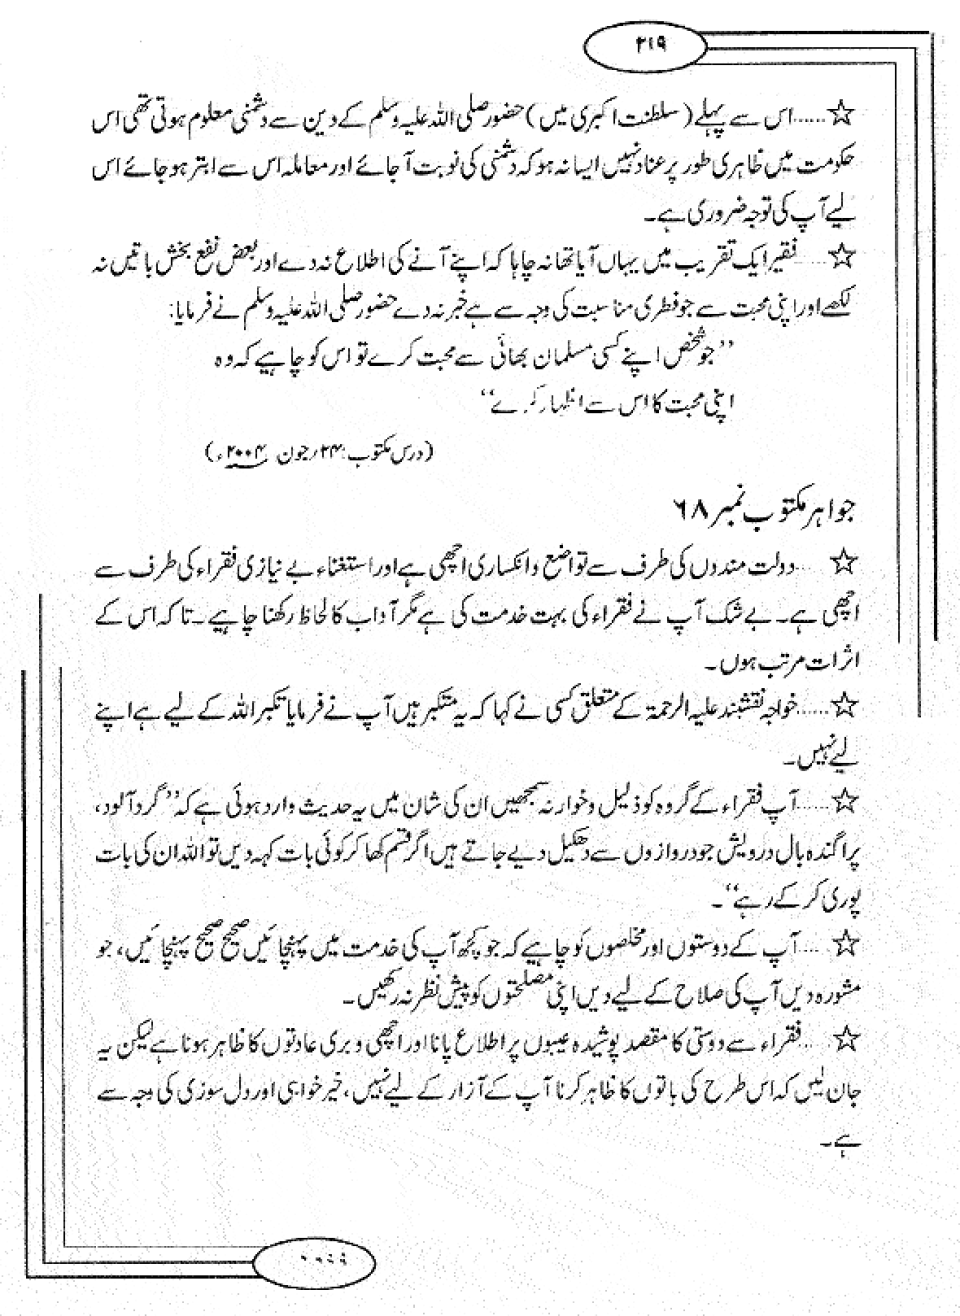 ۲۱۹
☆......اس سے پہلے (سلطنت اکبری میں) حضور صلی اللہ علیہ وسلم کے دین سے دشمنی معلوم ہوتی تھی اس
حکومت میں ظاہری طور پر عناد نہیں ایسا نہ ہو کہ دشمنی کی نوبت آ جائے اور معاملہ اس سے ابتر ہو جائے اس
لیے آپ کی توجہ ضروری ہے۔
☆......فقیر ایک تقریب میں یہاں آیا تھا نہ چاہا کہ اپنے آنے کی اطلاع نہ دے اور بعض نفع بخش باتیں نہ
لکھے اور اپنی محبت سے جو فطری مناسبت کی وجہ سے ہے خبر نہ دے حضور صلی اللہ علیہ وسلم نے فرمایا:
’’جو شخص اپنے کسی مسلمان بھائی سے محبت کرے تو اس کو چاہیے کہ وہ
اپنی محبت کا اس سے اظہار کرے‘‘
(درس مکتوب: ۲۴/ جون ۲۰۰۴ء)
جواہر مکتوب نمبر ۶۸
☆......دولت مندوں کی طرف سے تواضع و انکساری اچھی ہے اور استغناء بے نیازی فقراء کی طرف سے
اچھی ہے۔ بے شک آپ نے فقراء کی بہت خدمت کی ہے مگر آداب کا لحاظ رکھنا چاہیے۔ تا کہ اس کے
اثرات مرتب ہوں۔
☆......خواجہ نقشبند علیہ الرحمۃ کے متعلق کسی نے کہا کہ یہ متکبر ہیں آپ نے فرمایا تکبر اللہ کے لیے ہے اپنے
لیے نہیں۔
☆......آپ فقراء کے گروہ کو ذلیل و خوار نہ سمجھیں ان کی شان میں یہ حدیث وارد ہوئی ہے کہ ’’گرد آلود،
پراگندہ بال درویش جو دروازوں سے دھکیل دیے جاتے ہیں اگر قسم کھا کر کوئی بات کہہ دیں تو اللہ ان کی بات
پوری کر کے رہے‘‘۔
☆......آپ کے دوستوں اور مخلصوں کو چاہیے کہ جو کچھ آپ کی خدمت میں پہنچائیں صحیح صحیح پہنچائیں، جو
مشورہ دیں آپ کی صلاح کے لیے دیں اپنی مصلحتوں کو پیش نظر نہ رکھیں۔
☆......فقراء سے دوستی کا مقصد پوشیدہ عیبوں پر اطلاع پانا اور اچھی و بری عادتوں کا ظاہر ہونا ہے لیکن یہ
جان لیں کہ اس طرح کی باتوں کا ظاہر کرنا آپ کے آزار کے لیے نہیں، خیر خواہی اور دل سوزی کی وجہ سے
ہے۔